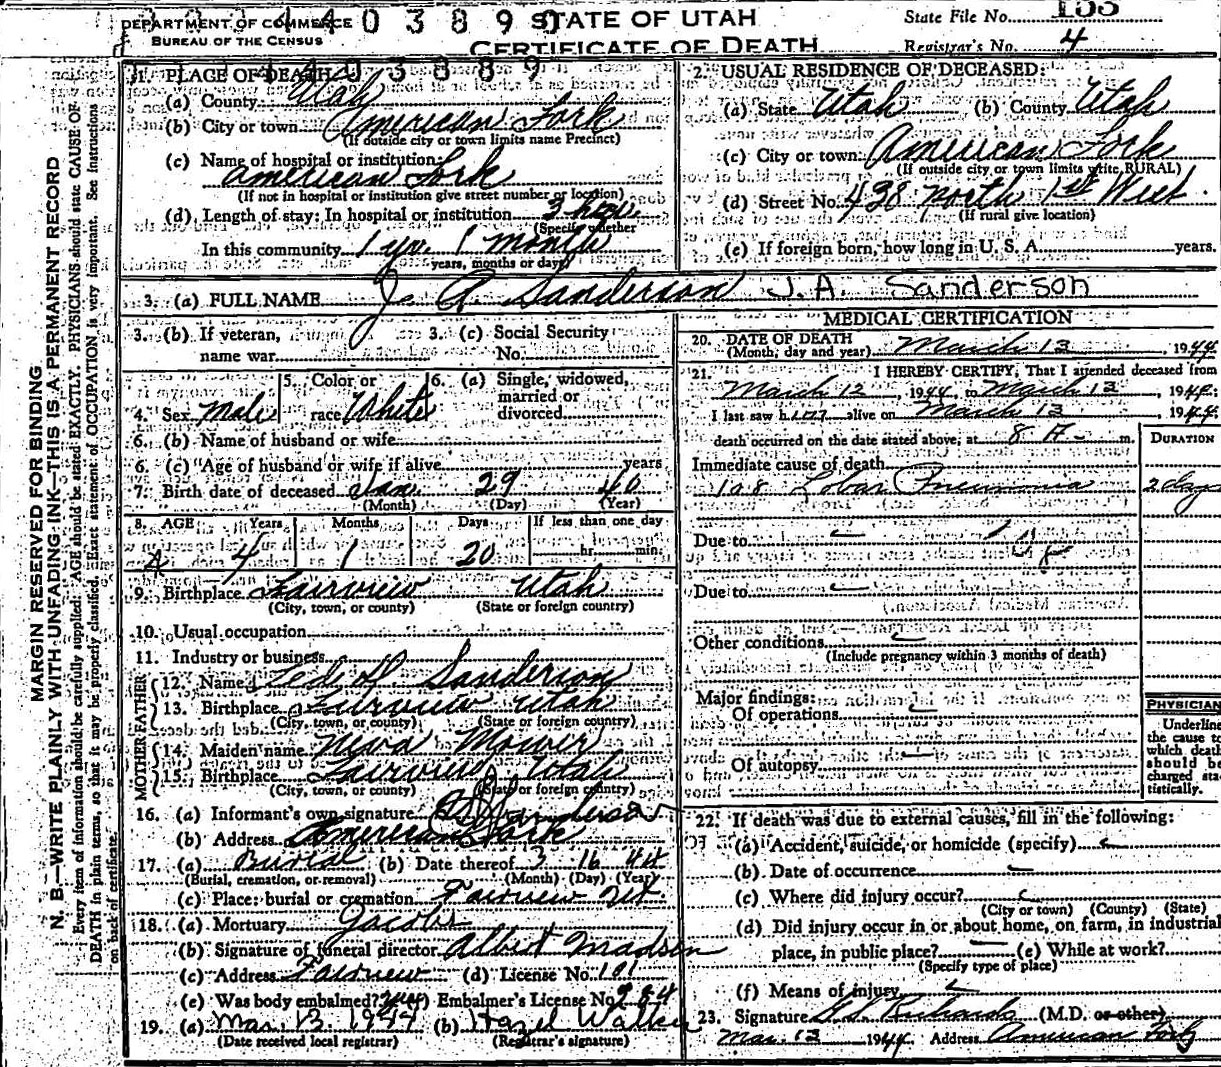 DEPARTMENT OF COMMERCE
BUREAU OF THE CENSUS
STATE OF UTAH
CERTIFICATE OF DEATH
State File No. 155
Registrar's No. 4
MARGIN RESERVED FOR BINDING
N. B.—WRITE PLAINLY WITH UNFADING INK—THIS IS A PERMANENT RECORD
Every item of information should be carefully supplied. AGE should be stated EXACTLY. PHYSICIANS should state CAUSE OF
DEATH in plain terms, so that it may be properly classified. Exact statement of OCCUPATION is very important. See instructions
on back of certificate.
1. PLACE OF DEATH
(a) County Utah
(b) City or town American Fork
(If outside city or town limits name Precinct)
(c) Name of hospital or institution:
American Fork
(If not in hospital or institution give street number or location)
(d) Length of stay: In hospital or institution 3 hou
(Specify whether
In this community 1 yr. 1 month
years, months or days)
2. USUAL RESIDENCE OF DECEASED:
(a) State Utah (b) County Utah
(c) City or town American Fork
(If outside city or town limits write RURAL)
(d) Street No. 438 North 1st West.
(If rural give location)
(e) If foreign born, how long in U. S. A. years.
3. (a) FULL NAME J. A. Sanderson J.A. Sanderson
3. (b) If veteran,
name war
3. (c) Social Security
No.
4. Sex Male
5. Color or
race White
6. (a) Single, widowed,
married or
divorced
6. (b) Name of husband or wife
6. (c) Age of husband or wife if alive years
7. Birth date of deceased Jan. 29 40
(Month) (Day) (Year)
8. AGE Years Months Days If less than one day
4 1 20 hr. min.
9. Birthplace Fairview Utah
(City, town, or county) (State or foreign country)
10. Usual occupation
11. Industry or business
FATHER
12. Name Sanderson
13. Birthplace Fairview Utah
(City, town, or county) (State or foreign country)
MOTHER
14. Maiden name Mower
15. Birthplace Fairview, Utah
(City, town, or county) (State or foreign country)
16. (a) Informant's own signature Sanderson
(b) Address American Fork
17. (a) Burial (b) Date thereof 3 16 44
(Burial, cremation, or removal) (Month) (Day) (Year)
(c) Place: burial or cremation Fairview Ut.
18. (a) Mortuary Jacobs
(b) Signature of funeral director Albert Madsen
(c) Address Fairview (d) License No. 101
(e) Was body embalmed? yes (f) Embalmer's License No. 284
19. (a) Mar. 13, 1944 (b) Hazel Walker
(Date received local registrar) (Registrar's signature)
MEDICAL CERTIFICATION
20. DATE OF DEATH
(Month, day and year) March 13, 1944
21. I HEREBY CERTIFY, That I attended deceased from
March 12, 1944, to March 13, 1944;
I last saw him alive on March 13, 1944;
death occurred on the date stated above, at 8 A. m.
DURATION
Immediate cause of death
108 Lobar Pneumonia 2 days
Due to 108
Due to
Other conditions
(Include pregnancy within 3 months of death)
Major findings:
Of operations
Of autopsy
PHYSICIAN
Underline
the cause to
which death
should be
charged sta-
tistically.
22. If death was due to external causes, fill in the following:
(a) Accident, suicide, or homicide (specify)
(b) Date of occurrence
(c) Where did injury occur?
(City or town) (County) (State)
(d) Did injury occur in or about home, on farm, in industrial
place, in public place? (e) While at work?
(Specify type of place)
(f) Means of injury
23. Signature Richards (M.D. or other)
Mar. 13 1944 Address American Fork